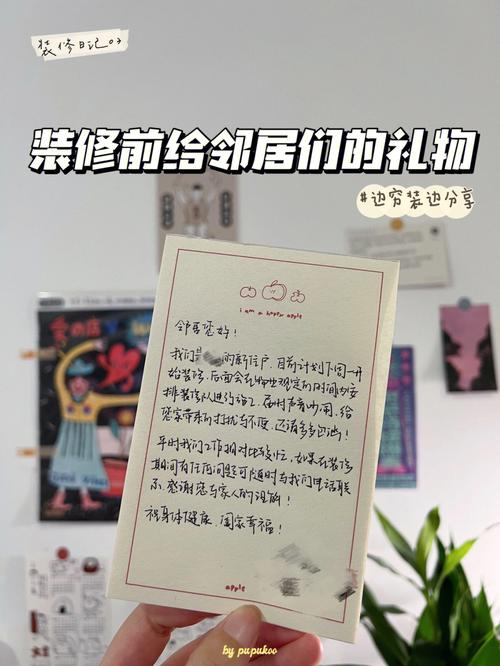 装修日记03
装修前给邻居们的礼物
#边穷装边分享
i am a happy apple
邻居您好！
我们是 的新住户，目前计划下周一开
始装修，后面会在物业规定的时间内安
排装修队进行施工。届时声音吵闹，给
您家带来的打扰与不便，还请多多包涵！
平时我们工作相对比较忙，如果在装修
期间有任何问题可随时与我们电话联
系。感谢您与家人的谅解！
祝身体健康，阖家幸福！
apple
by pupukoo